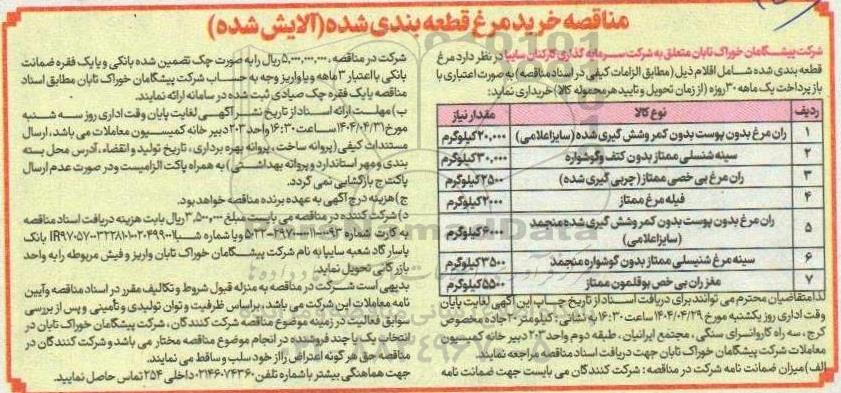 مناقصه خرید مرغ قطعه بندی شده (آلایش شده)
شرکت پیشگامان خوراک تابان متعلق به شرکت سرمایه گذاری کارکنان سایپا در نظر دارد مرغ
قطعه بندی شده شامل اقلام ذیل (مطابق الزامات کیفی در اسناد مناقصه) به صورت اعتباری با
باز پرداخت یک ماهه ۳۰ روزه (از زمان تحویل و تایید هر محموله کالا) خریداری نماید:
ردیف نوع کالا مقدار نیاز
۱ ران مرغ بدون پوست بدون کمر وشش گیری شده (سایز اعلامی) ۲۰,۰۰۰ کیلوگرم
۲ سینه شنسلی ممتاز بدون کتف و گوشواره ۳۰,۰۰۰ کیلوگرم
۳ ران مرغ بی خصی ممتاز (چربی گیری شده) ۲۵۰۰ کیلوگرم
۴ فیله مرغ ممتاز ۲۰۰۰ کیلوگرم
۵ ران مرغ بدون پوست بدون کمر وشش گیری شده منجمد
(سایز اعلامی) ۶۰۰۰ کیلوگرم
۶ سینه مرغ شنیسلی ممتاز بدون گوشواره منجمد ۳۵۰۰ کیلوگرم
۷ مغز ران بی خص بوقلمون ممتاز ۵۵۰۰ کیلوگرم
لذا متقاضیان محترم می توانند برای دریافت اسناد از تاریخ چاپ این آگهی لغایت پایان
وقت اداری روز یکشنبه مورخ ۱۴۰۴/۰۴/۲۹ ساعت ۱۶:۳۰ به نشانی: کیلومتر ۲۰ جاده مخصوص
کرج، سه راه کاروانسرای سنگی، مجتمع ایرانیان، طبقه دوم واحد ۲۰۳ دبیر خانه کمیسیون
معاملات شرکت پیشگامان خوراک تابان جهت دریافت اسناد مناقصه مراجعه نمایند.
الف) میزان ضمانت نامه شرکت در مناقصه: شرکت کنندگان می بایست جهت ضمانت نامه
شرکت در مناقصه، ۵,۰۰۰,۰۰۰,۰۰۰ ریال را به صورت چک تضمین شده بانکی و یا یک فقره ضمانت
بانکی با اعتبار ۳ ماهه و یا واریز وجه به حساب شرکت پیشگامان خوراک تابان مطابق اسناد
مناقصه یا یک فقره چک صیادی ثبت شده در سامانه ارائه نمایند.
ب) مهلت ارائه اسناد از تاریخ نشر آگهی لغایت پایان وقت اداری روز سه شنبه
مورخ ۱۴۰۴/۰۴/۳۱ ساعت ۱۶:۳۰ واحد ۲۰۳ دبیر خانه کمیسیون معاملات می باشد، ارسال
مستندات کیفی (پروانه ساخت، پروانه بهره برداری، تاریخ تولید و انقضاء، آدرس محل بسته
بندی و مهر استاندارد و پروانه بهداشتی) به همراه پاکت الزامیست و در صورت عدم ارسال
پاکت ج بازگشایی نمی گردد.
ج) هزینه درج آگهی به عهده برنده مناقصه خواهد بود.
د) شرکت کننده در مناقصه می بایست مبلغ ۳,۵۰۰,۰۰۰ ریال بابت هزینه دریافت اسناد مناقصه
به کارت شماره و یا شماره شبا بانک
پاسارگاد شعبه سایپا به نام شرکت پیشگامان خوراک تابان واریز و فیش مربوطه را به واحد
بازرگانی تحویل نماید
بدیهی است شرکت در مناقصه به منزله قبول شروط و تکالیف مقرر در اسناد مناقصه وآیین
نامه معاملات این شرکت می باشد، براساس ظرفیت و توان تولیدی و تأمینی و پس از بررسی
سوابق فعالیت در زمینه موضوع مناقصه شرکت کنندگان، شرکت پیشگامان خوراک تابان در
انتخاب یک یا چند فروشنده در انجام موضوع مناقصه مختار می باشد و شرکت کنندگان در
مناقصه حق هر گونه اعتراض را از خود سلب و ساقط می نمایند.
جهت هماهنگی بیشتر با شماره تلفن ۰۲۱۴۶۰۷۴۳۶۰ داخلی ۲۵۴ تماس حاصل نمایید.